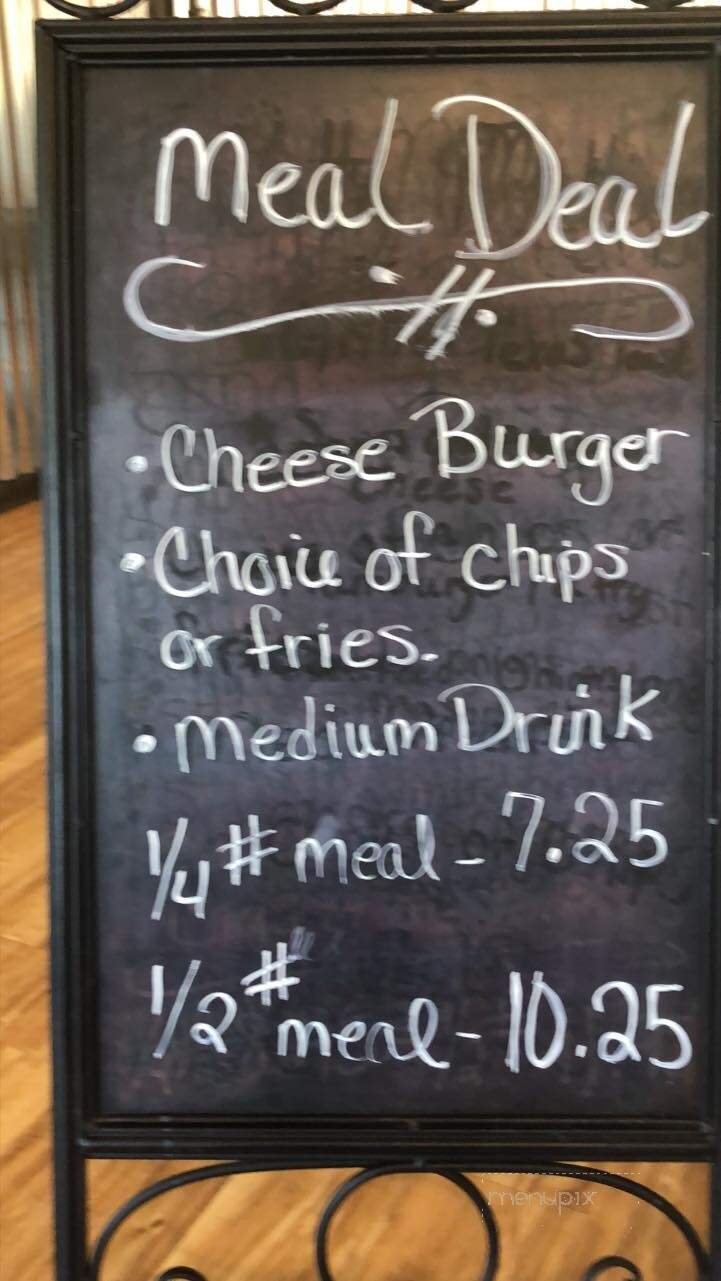 Meal Deal
• Cheese Burger
• Choice of chips
or fries.
• Medium Drink
1/4 # meal - 7.25
1/2 # meal - 10.25
menupix